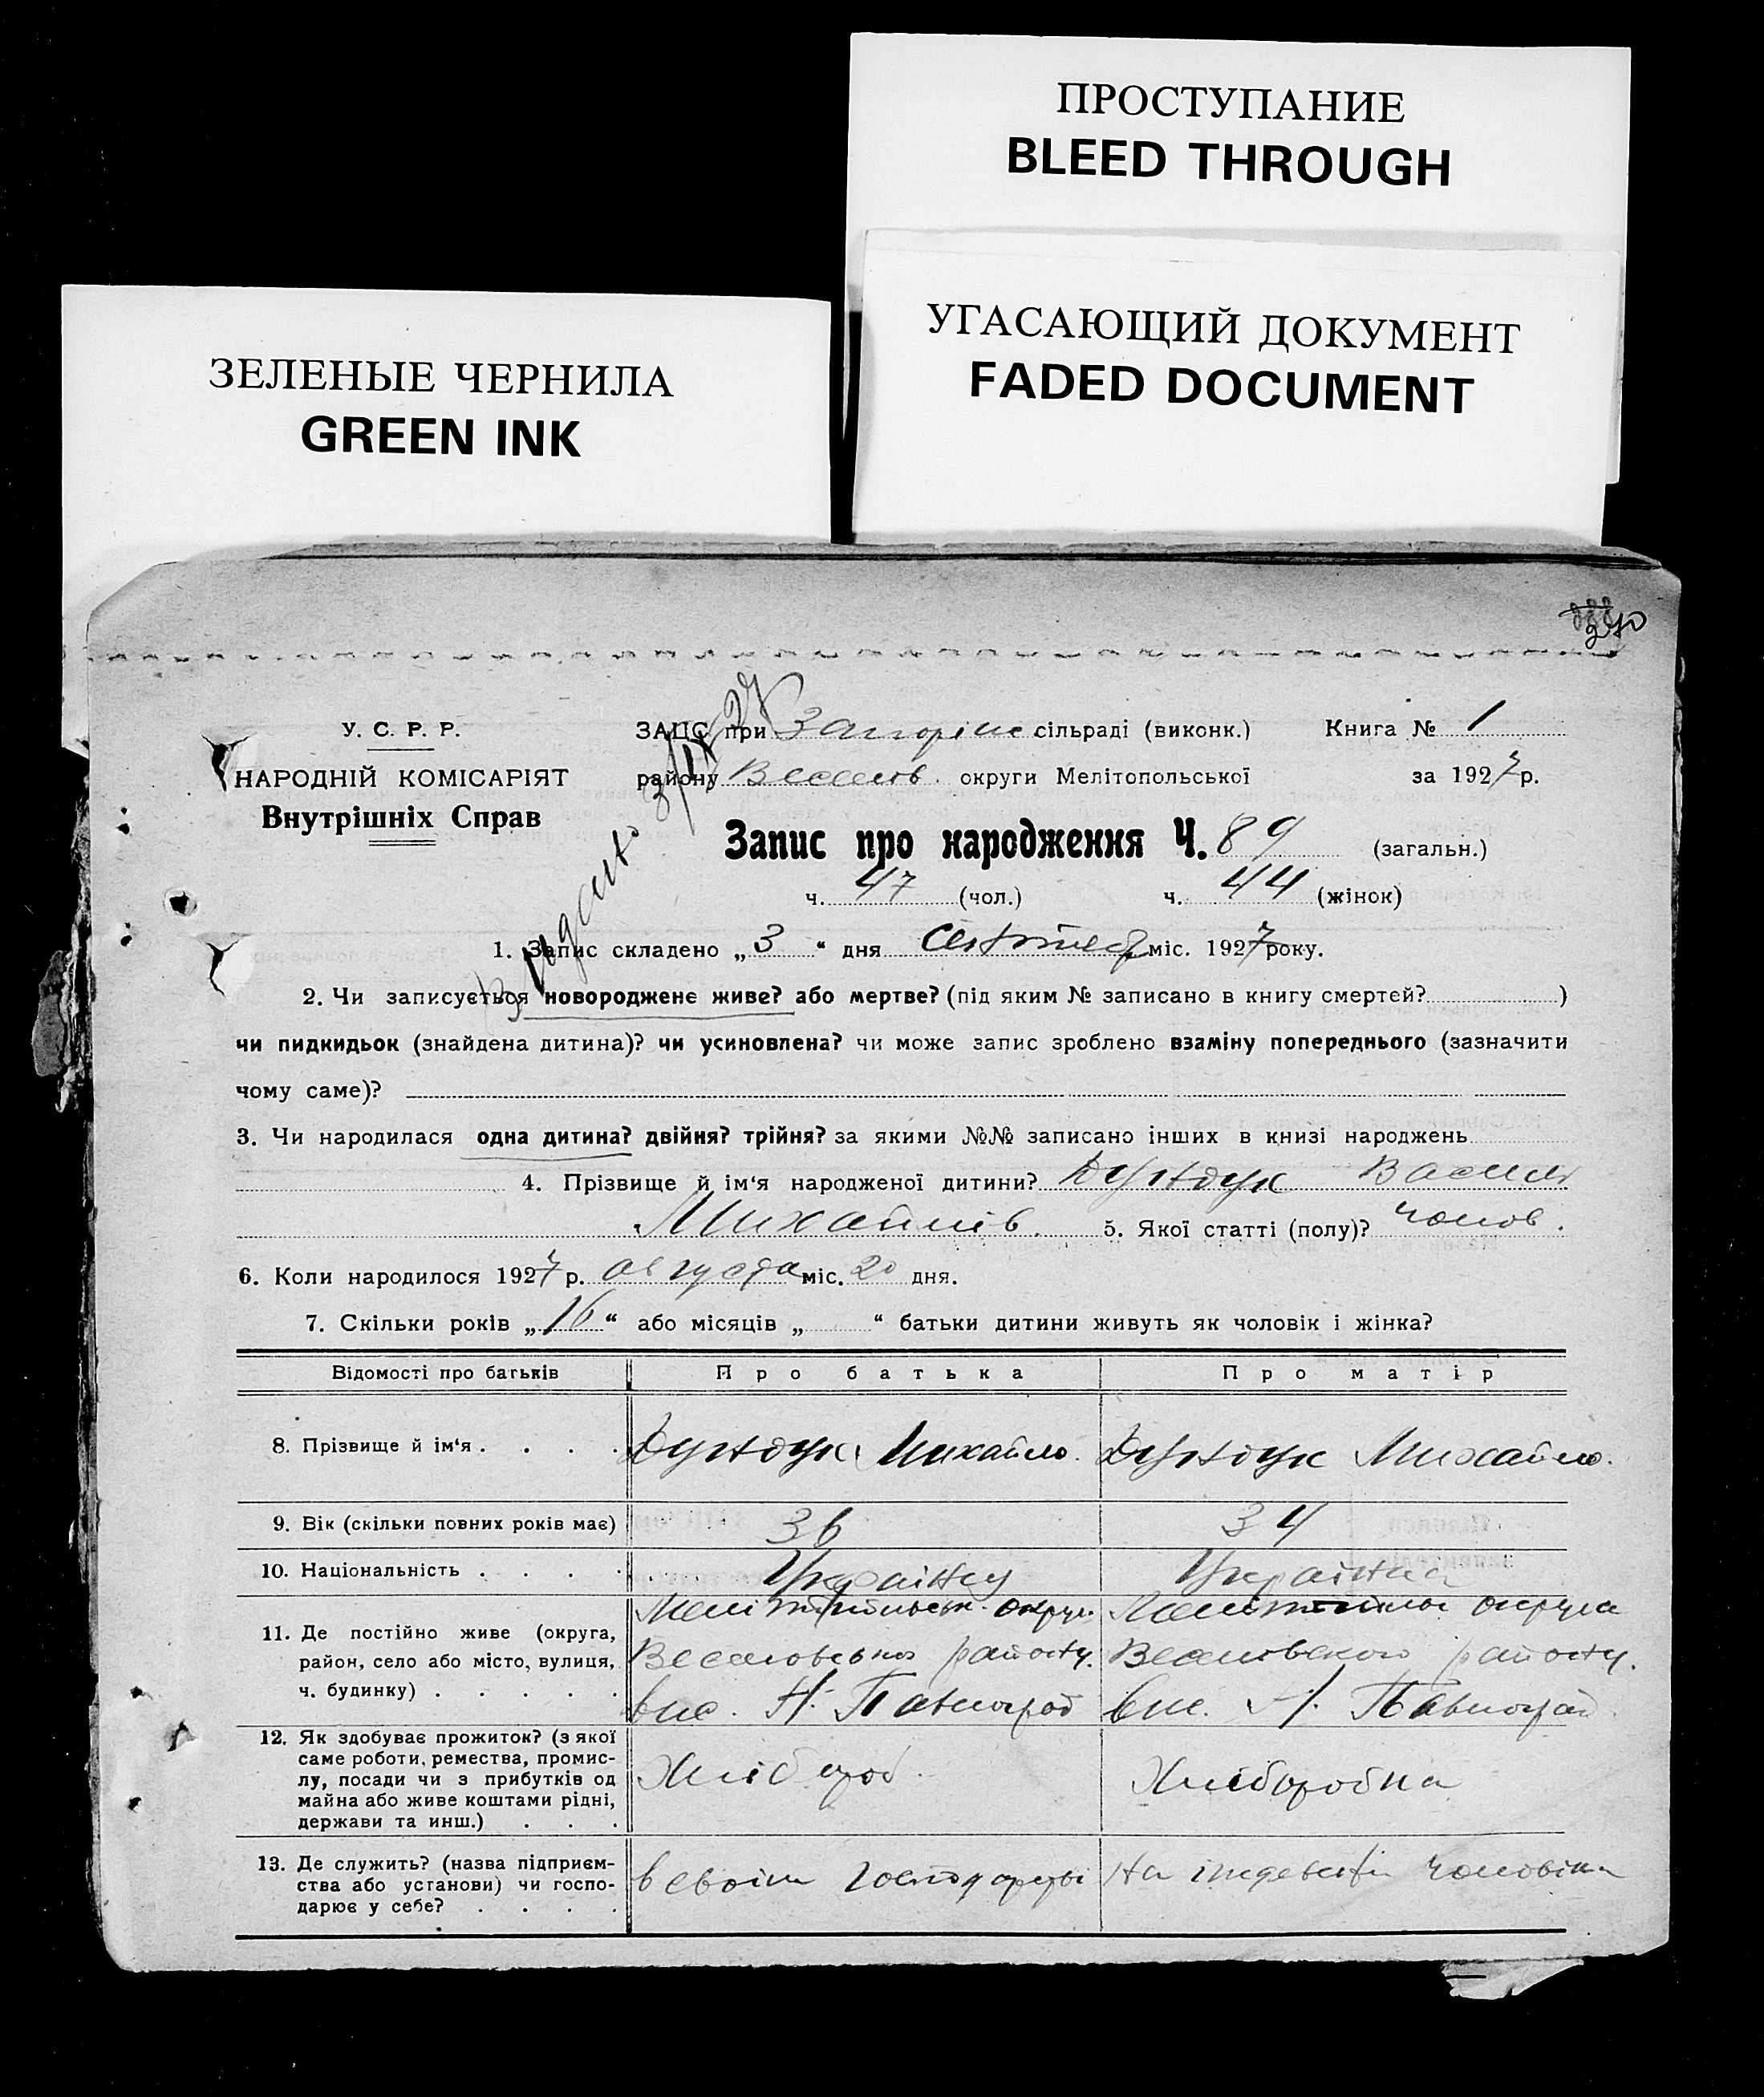 ПРОСТУПАНИЕ
BLEED THROUGH
УГАСАЮЩИЙ ДОКУМЕНТ
FADED DOCUMENT
ЗЕЛЕНЫЕ ЧЕРНИЛА
GREEN INK
У. С. Р. Р.
НАРОДНІЙ КОМІСАРІЯТ
Внутрішніх Справ
ЗАЦС при сільраді (виконк.) Книга № 1
району Веселов. округи Мелітопольської за 1927 р.
Запис про народження Ч. 89 (загальн.)
ч. 47 (чол.) ч. 44 (жінок)
1. Запис складено „ 3 “ дня міс. 1927 року.
2. Чи записується новороджене живе? або мертве? (під яким № записано в книгу смертей? )
чи пидкидьок (знайдена дитина)? чи усиновлена? чи може запис зроблено взаміну попереднього (зазначити
чому саме)?
3. Чи народилася одна дитина? двійня? трійня? за якими №№ записано інших в книзі народжень
4. Прізвище й ім‘я народженої дитини? Дундук Василь
Михайлів. 5. Якої статті (полу)? чолов.
6. Коли народилося 1927 р. августа міс. 20 дня.
7. Скільки років „ 16 “ або місяців „ “ батьки дитини живуть як чоловік і жінка?
Відомості про батьків Про батька Про матір
8. Прізвище й ім‘я . . . . Дундук Михайло. Дундук Михайло.
9. Вік (скільки повних років має) 36 34
10. Національність . . . .
11. Де постійно живе (округа,
район, село або місто, вулиця,
ч. будинку) . . . . .
округ. округа
району. Веселовского району.
Н. Павлоград Н. Павлоград
12. Як здобуває прожиток? (з якої
саме роботи, ремества, промис-
лу, посади чи з прибутків од
майна або живе коштами рідні,
держави та инш.) . . .
Хлібороб. Хліборобка
13. Де служить? (назва підприєм-
ства або установи) чи госпо-
дарює у себе? . . . .
в своїм На чоловіка